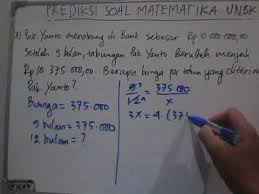 PREDIKSI SOAL MATEMATIKA UNBK
Pak Yanto menabung di Bank sebesar Rp 10 000 000,00
Setelah 9 bulan tabungan Pak Yanto berubah menjadi
Rp 10 375 000,00. Berapa bunga per tahun yang diterima
Pak Yanto?
Bunga = 375.000
9 bulan = 375.000
12 bulan = ?
9/12 = 375 000/x
3x = 4 (375